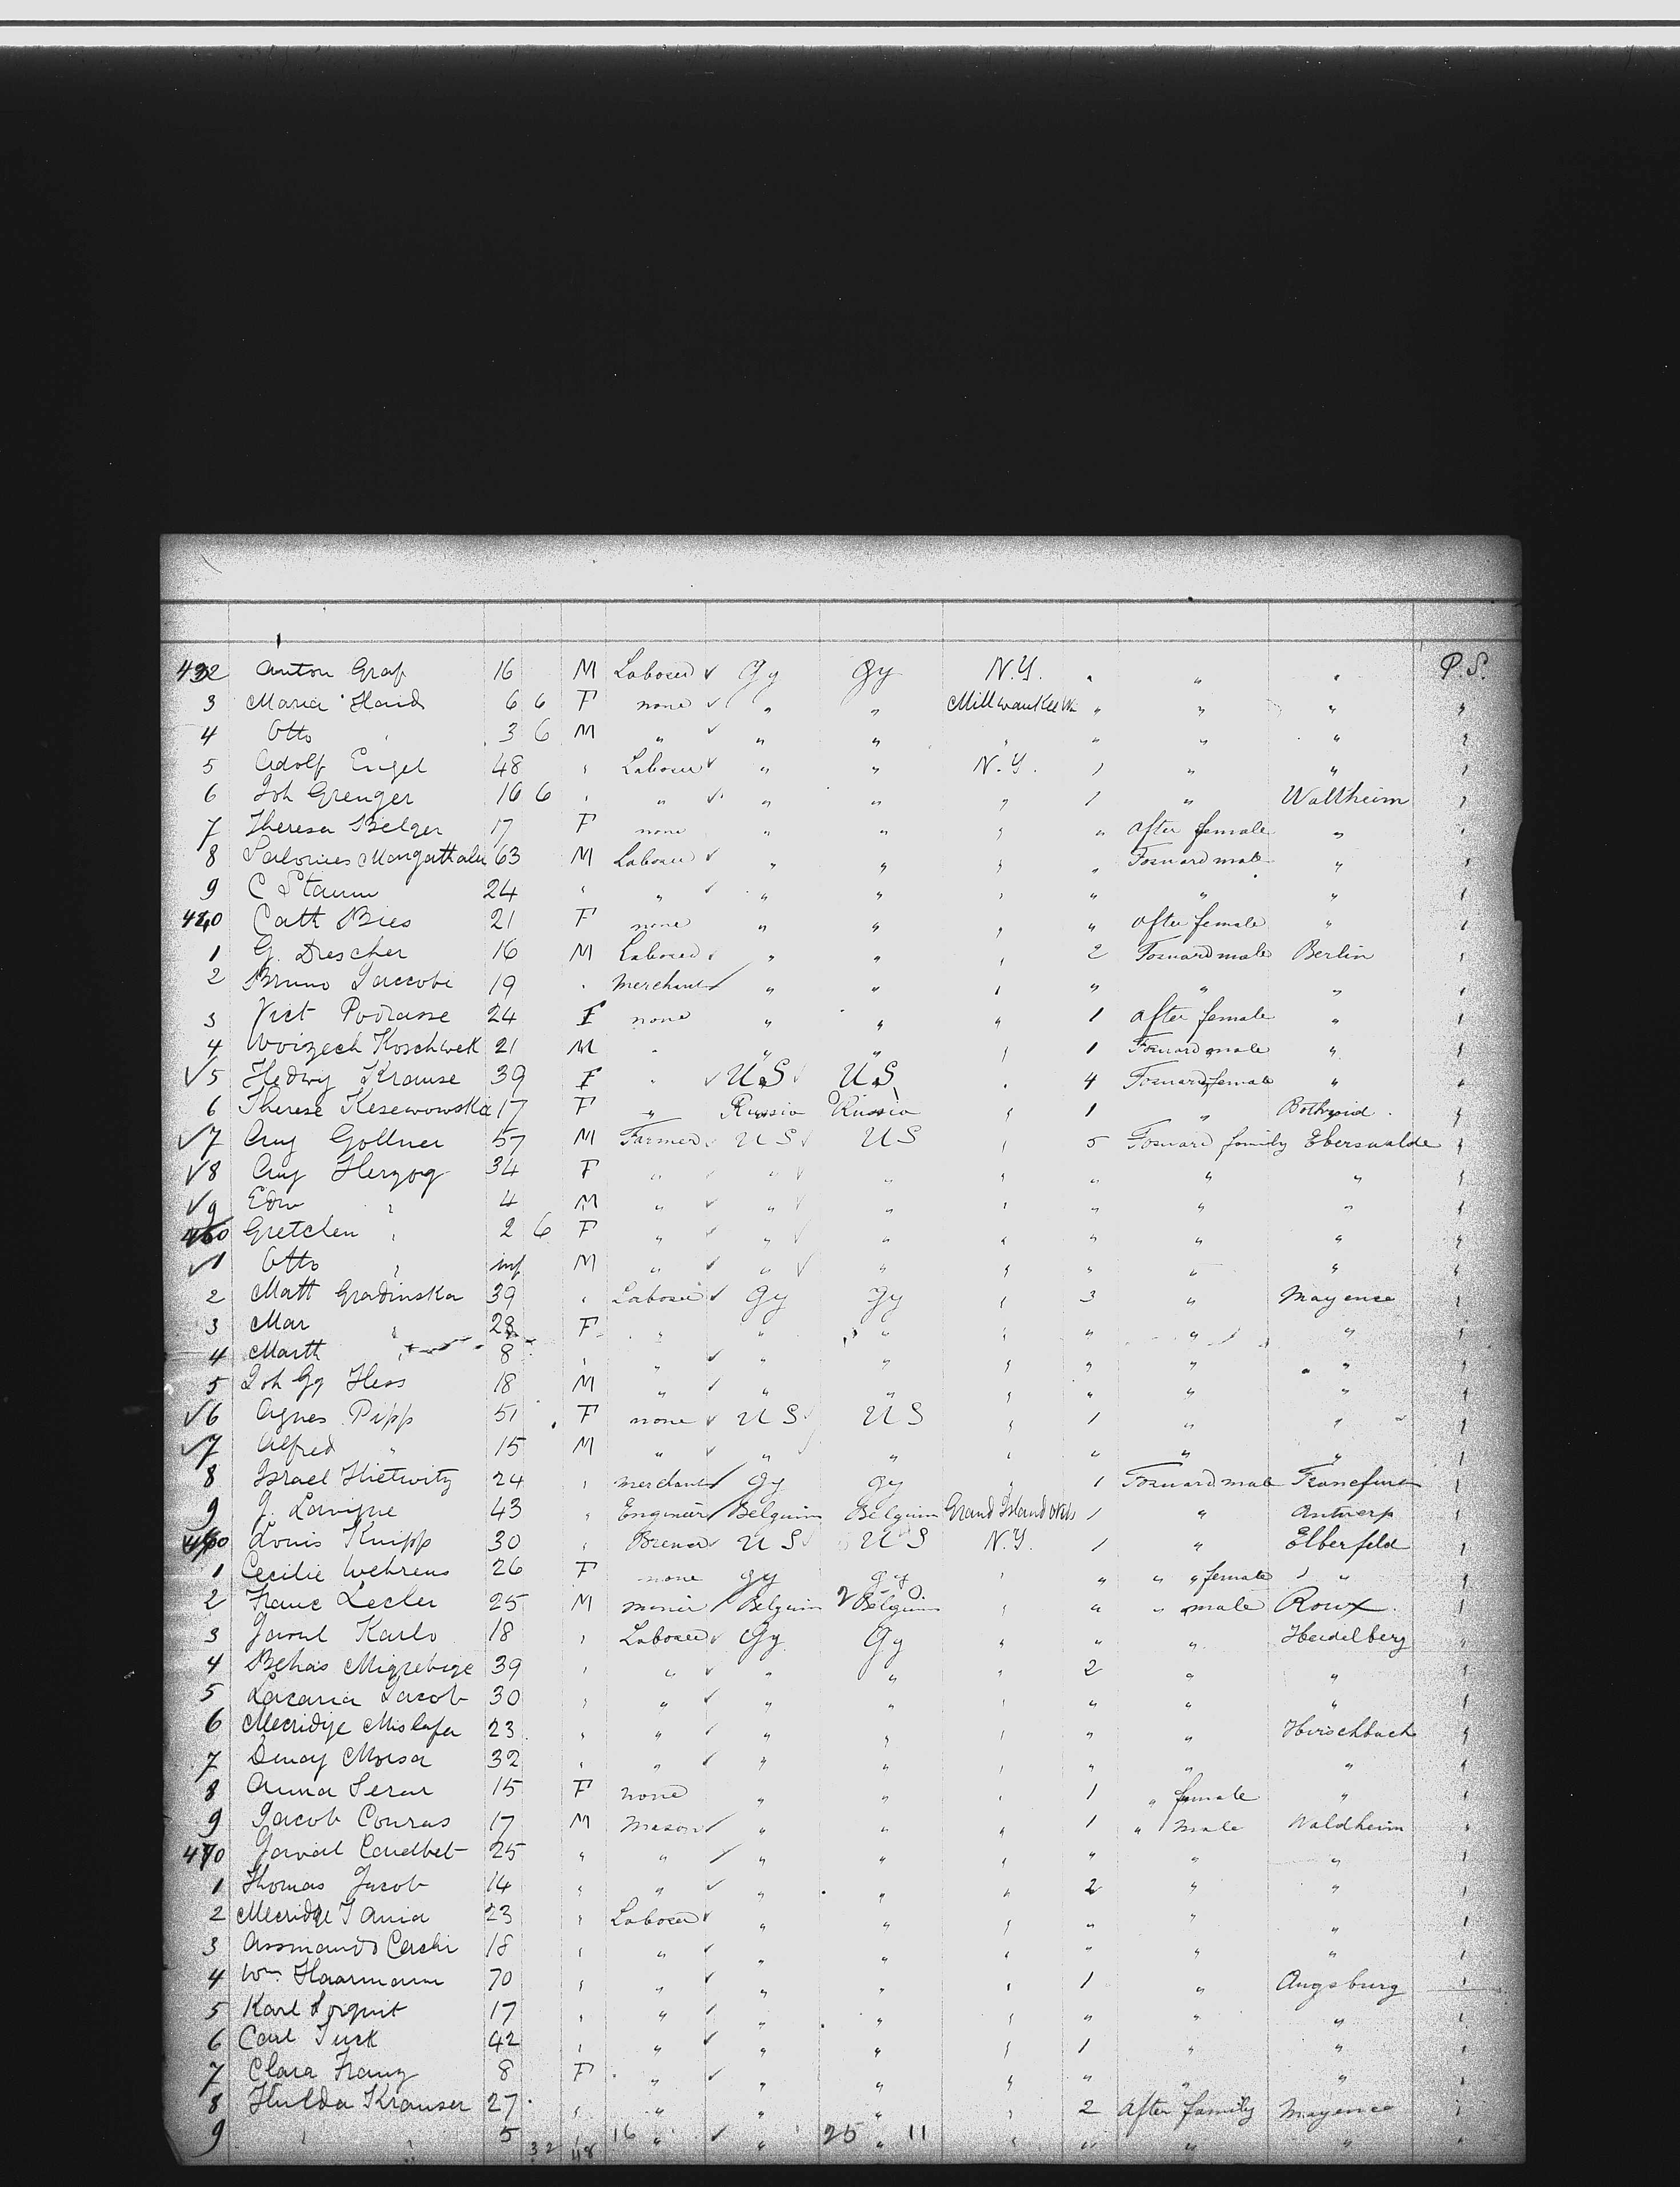 432 Anton Graf 16 M Laborer ✓ Gy Gy N.Y. " " " P.S.
3 Maria Haid 6 6 F none ✓ " " Millwaukee Wi " " " "
4 Otto " 3 6 M " ✓ " " " " " " "
5 Adolf Engel 48 " Laborer ✓ " " N.Y. 1 " " "
6 Joh Grenger 16 6 " " ✓ " " " 1 " Waltheim "
7 Theresa Belger 17 F none " " " " After female " "
8 63 M Laborer ✓ " " " " Forward male " "
9 C Stamm 24 " " ✓ " " " " " " "
440 Cath Bies 21 F none " " " " After female " "
1 G. Drescher 16 M Laborer ✓ " " " 2 Forward male Berlin "
2 Bruno Jaccobi 19 " Merchant ✓ " " " " " " "
3 Vict Podrasse 24 F none " " " 1 After female " "
4 Woizech Koschwek 21 M " " " " 1 Forward male " "
✓5 Hedwig Krause 39 F " ✓ U.S ✓ U.S. " 4 Forward female " "
6 Therese Kesewowska 17 F " Russia Russia " 1 " "
✓7 Aug Gollner 57 M Farmer ✓ U S ✓ U S " 5 Forward family Eberswalde "
✓8 Aug Herzog 34 F " ✓ " ✓ " " " " " "
✓9 Edw " 4 M " ✓ " ✓ " " " " " "
450 Gretchen " 2 6 F " ✓ " ✓ " " " " " "
✓1 Otto " inf M " ✓ " ✓ " " " " " "
2 Matt Gradinska 39 " Laborer ✓ Gy Gy " 3 " Mayence "
3 Mar " 28 F " " " " " " " "
4 Marth " 8 " " ✓ " " " " " " "
5 Joh Gg Hess 18 M " ✓ " " " " " " "
✓6 Agnes Pipp 51 F none ✓ U S ✓ U S " 1 " " "
✓7 Alfred " 15 M " ✓ " ✓ " " " " " "
8 Israel Hietwitz 24 " Merchant ✓ Gy Gy " 1 Forward male Francfurt "
9 J. Lavigne 43 " Engineer ✓ Belgium Belgium Grand Island 1 " Antwerp "
460 Louis Knipp 30 " Brewer ✓ U S ✓ U S N.Y. 1 " Elberfeld "
1 Cecilie Wehrens 26 F none Gy Gy " " " " female " "
2 Franc Lecler 25 M Minier ✓ Belgium Belgium " " " male Roux "
3 Karlo 18 " Laborer ✓ Gy Gy " " " Heidelberg "
4 Behas 39 " " ✓ " " " 2 " " "
5 Lazaria Jacob 30 " " ✓ " " " " " " "
6 23 " " ✓ " " " " " Hirschbach "
7 Moisa 32 " " ✓ " " " " " " "
8 Anna Serar 15 F none " " " 1 " female " "
9 Jacob Conras 17 M Mason ✓ " " " 1 " Male Waldheim "
470 25 " " ✓ " " " " " " "
1 Thomas Jacob 14 " " ✓ " " " 2 " " "
2 23 " Laborer ✓ " " " " " " "
3 18 " " ✓ " " " " " " "
4 Wm. Haarmann 70 " " ✓ " " " 1 " Augsburg "
5 Karl 17 " " ✓ " " " " " " "
6 Carl Tuck 42 " " ✓ " " " 1 " " "
7 Clara Franz 8 F " ✓ " " " " " " "
8 Hulda Krauser 27 " " " " " 2 After family Mayence "
9 " " 5 " " ✓ " " " " " " "
32 48 16 25 11